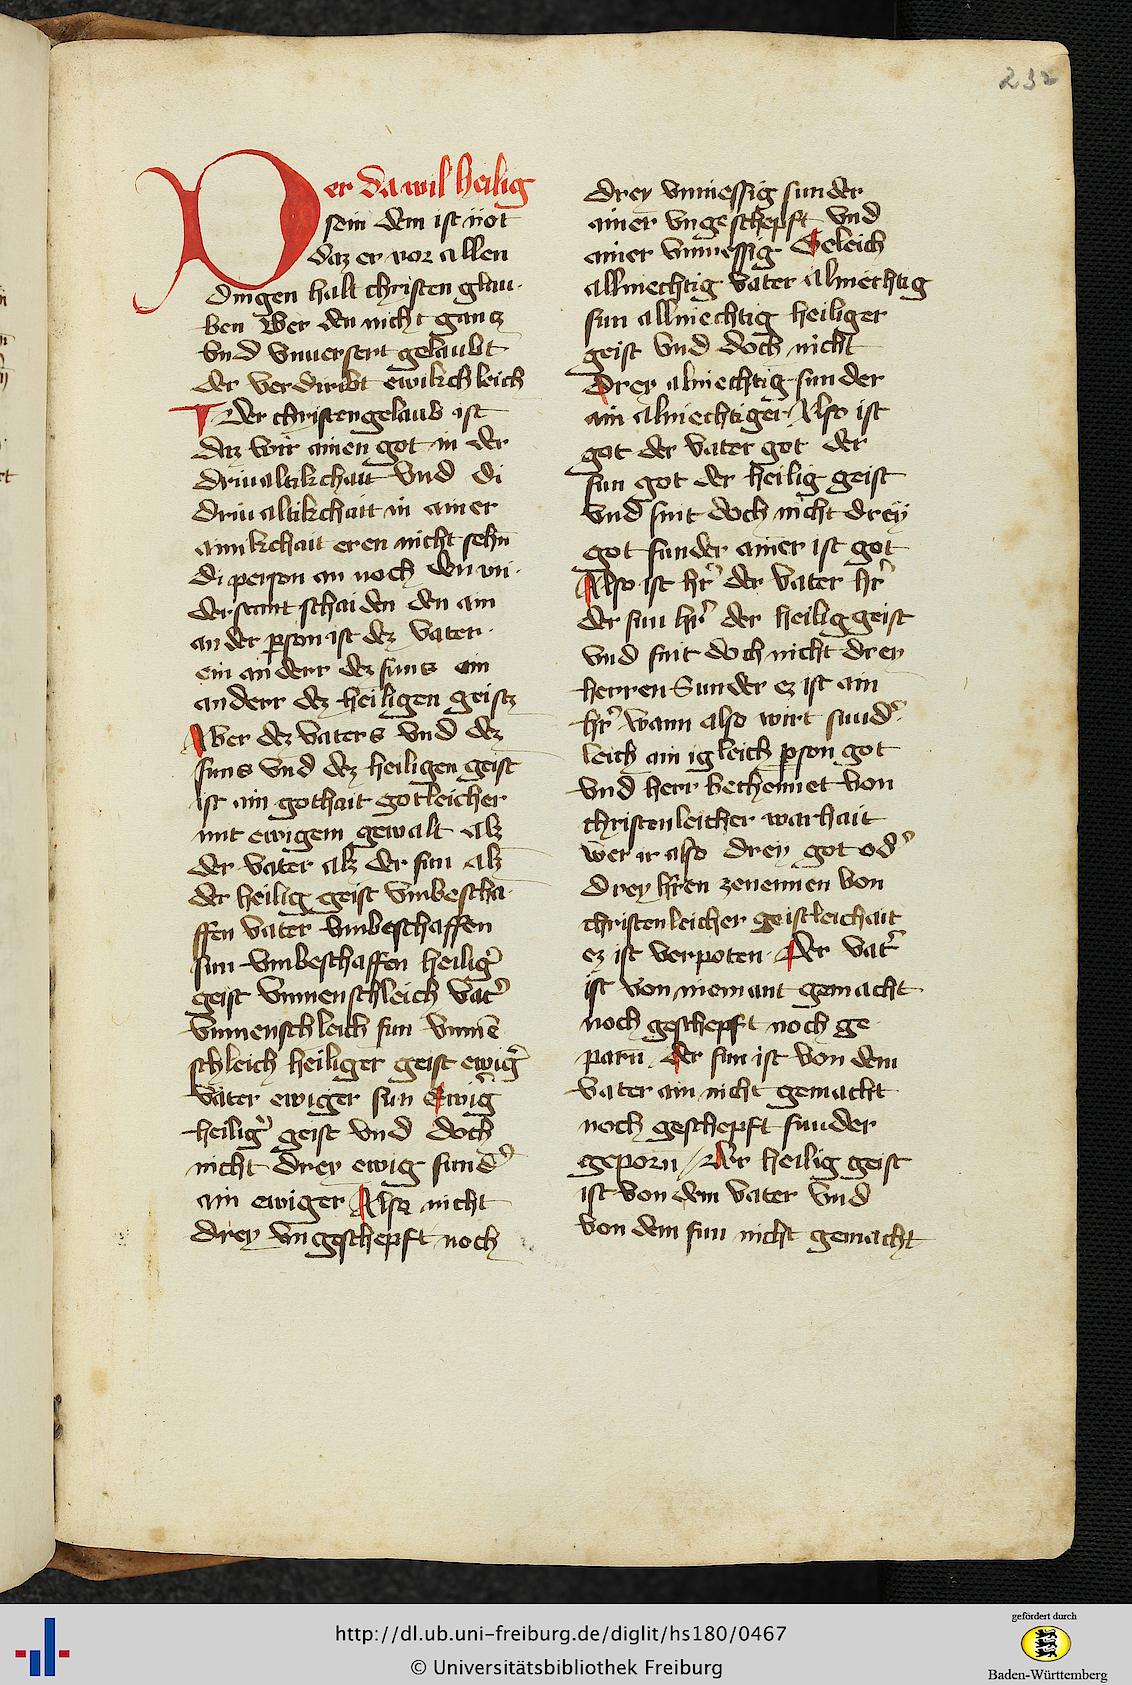 232
Der da wil heilig
sein dem ist not
daz er vor allen
dingen halt christen glau
ben Wer den nicht gancz
vnd vnuersert gelaubt
der verdiribt ewikchleich
Der christen gelaub ist
daz wir ainen got in der
driualtikchait vnd di
driualtikchait in ainer
ainikchait eren nicht sehn
di person an noch den vn
derstant schaiden den ain
an der pson ist dez vater
ein anderr dez suns ain
anderr dez heiligen geistz
Aber dez vaters vnd dez
suns vnd dez heiligen geist
ist ain gothait gotleicher
mit ewigem gewalt Alz
der vater alz der sun alz
der heilig geist vnbescha
ffen vater vnbeschaffen
sun vnbeschaffen heilig'
geist Vnmenschleich vat'
vnmenschleich sun vnmē
schleich heiliger geist ewig'
vater ewiger sun Ewig'
heilig' geist vnd doch
nicht drey ewig sund'
ain ewiger Also nicht
drey vngeschepft noch
drey vnmessig sunder
ainer vngeschepft vnd
ainer vnmessig Geleich
allmechtig vater Almechtig
sun allmechtig heiliger
geist vnd doch nicht
drey almechtig sunder
ain almechtiger Also ist
got der vater got der
sun got der heilig geist
vnd sint doch nicht dreÿ
got sunder ainer ist got
Also ist hr' der vater hr'
der sun hr' der heilig geist
vnd sint doch nicht drey
herren Sunder ez ist ain
hr' wann also wirt sund'
leich ain igleich pson got
vnd herr bechennet von
christenleicher warhait
wer ir also drey got od'
drey hren zenennen von
christenleicher geistleichait
ez ist verpoten Der vat'
ist von niemant gemacht
noch geschepft noch ge
parn der sun ist von dem
vater ain nicht gemacht
noch geschepft sunder
geporn Der heilig geist
ist von dem vater vnd
von dem sun nicht gemacht
http://dl.ub.uni-freiburg.de/diglit/hs180/0467
© Universitätsbibliothek Freiburg
gefördert durch
Baden-Württemberg